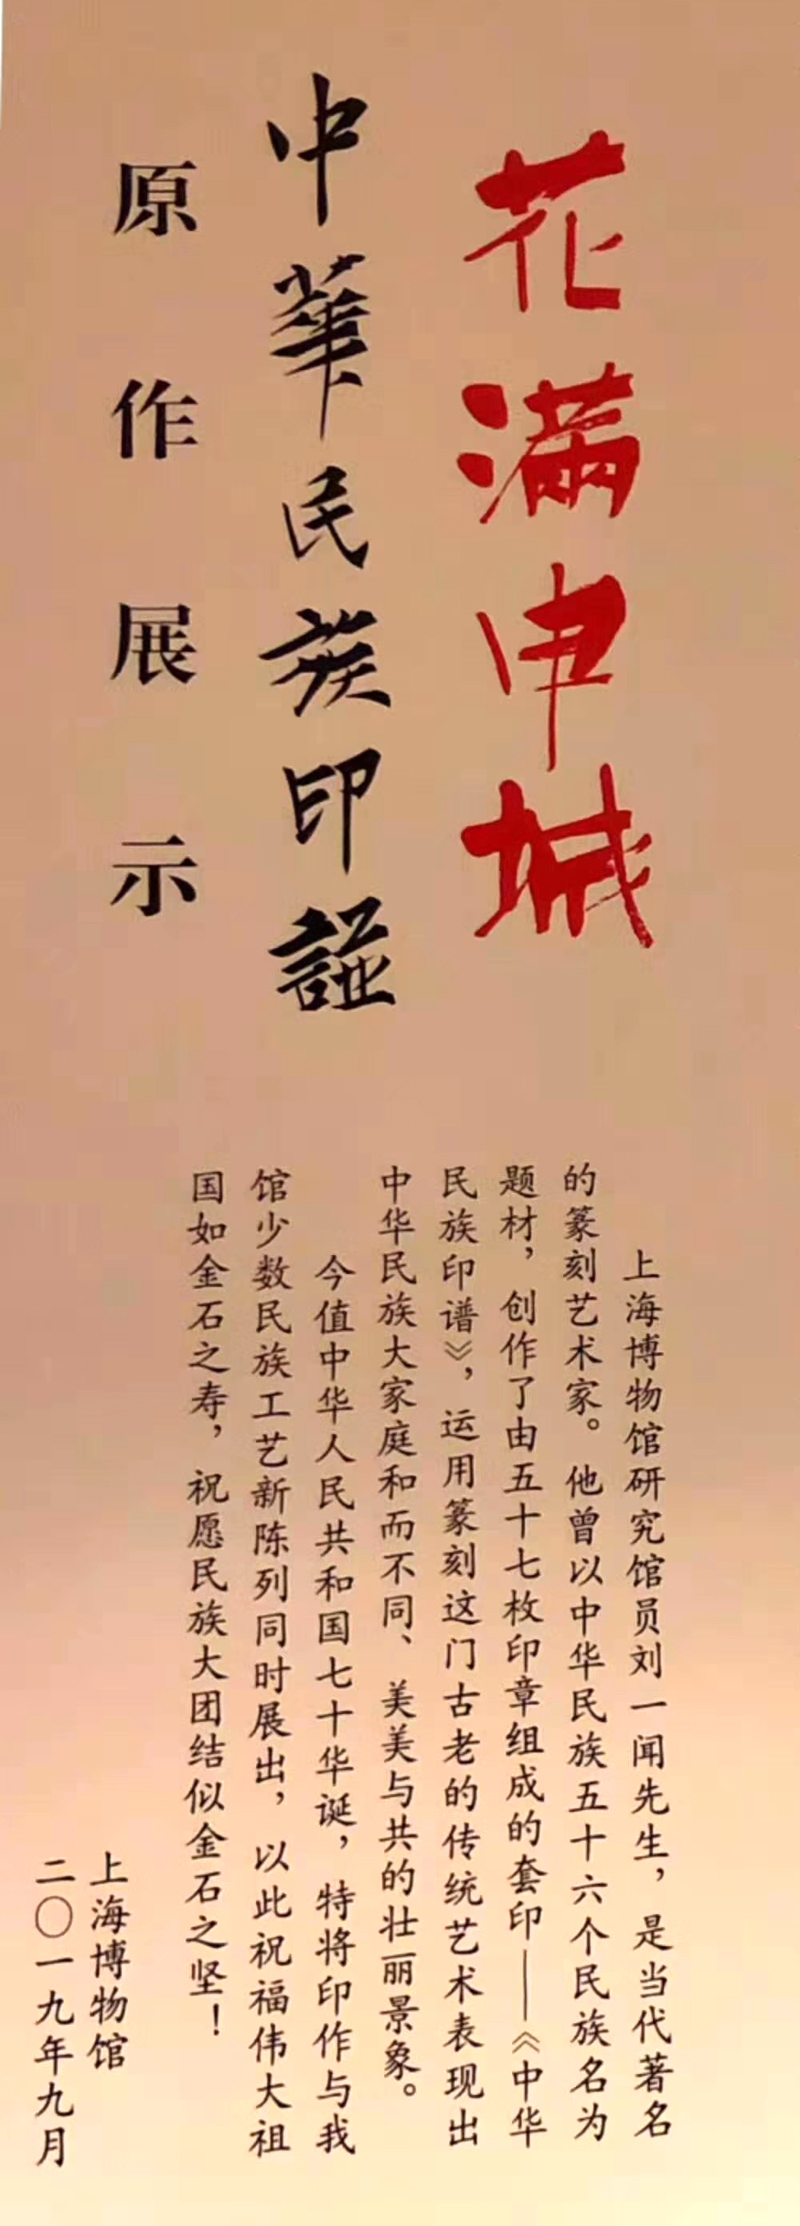 花满申城
中華民族印譜
原作展示
上海博物馆研究馆员刘一闻先生，是当代著名
的篆刻艺术家。他曾以中华民族五十六个民族名为
题材，创作了由五十七枚印章组成的套印——《中华
民族印谱》，运用篆刻这门古老的传统艺术表现出
中华民族大家庭和而不同、美美与共的壮丽景象。
今值中华人民共和国七十华诞，特将印作与我
馆少数民族工艺新陈列同时展出，以此祝福伟大祖
国如金石之寿，祝愿民族大团结似金石之坚！
上海博物馆
二〇一九年九月